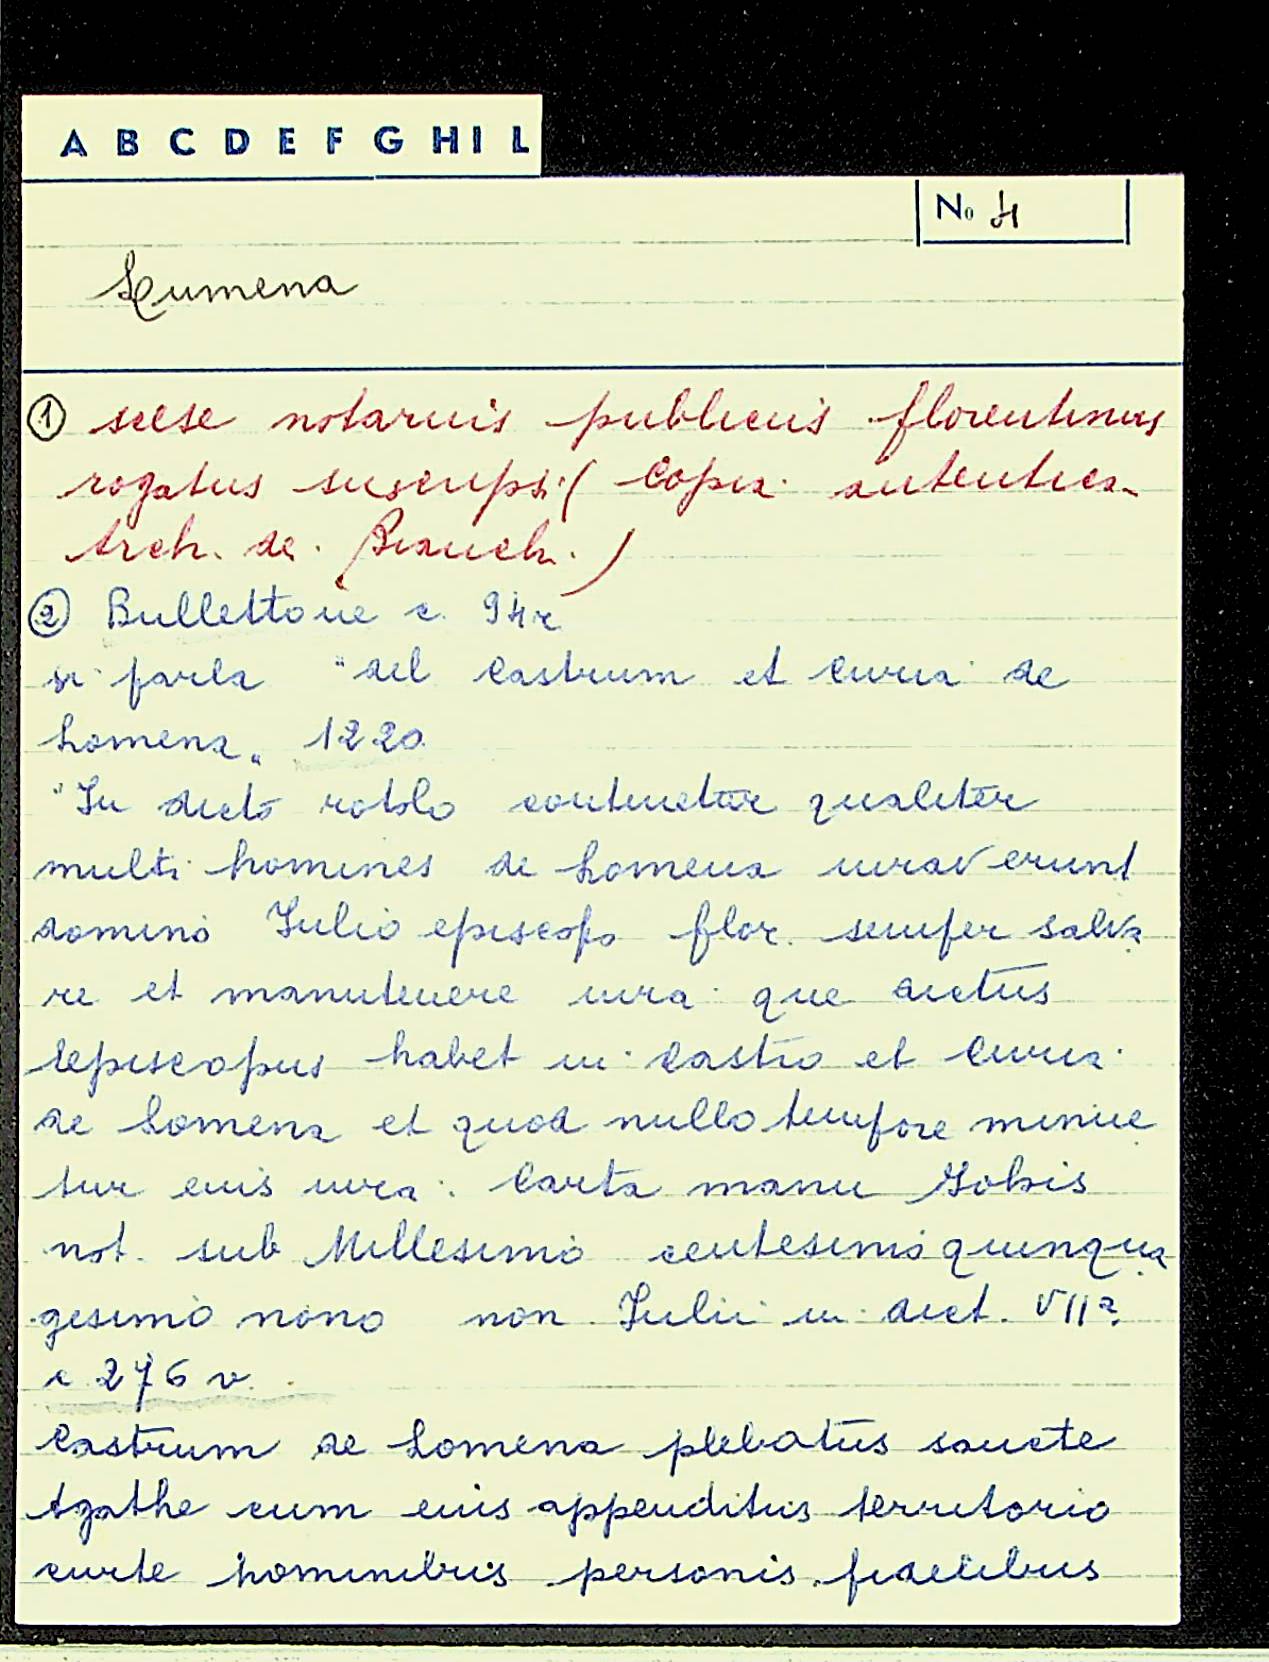 A B C D E F G H I L
No 4
Lumena
① scese notarius publicus florentinus
rogatus suscripsi (Copia autentica
Arch. de. Bianch.)
② Bullettone c. 94r
si parla "del Castrum et Curia de
Lomena" 1220
"In dicto rotolo continetur qualiter
multi homines de Lomena iuraverunt
domino Iulio episcopo flor. semper salva
re et manutenere iura que dictus
episcopus habet in castro et Curia
de Lomena et quod nullo tempore minue
tur eius iura. Carta manu
not. sub Millesimo centesimo quinqua
gesimo nono non Iulii in dict. VIIa
c 276 v.
Castrum de Lomena plebatus sancte
Agathe cum eius appenditiis territorio
curte hominibus personis fidelibus